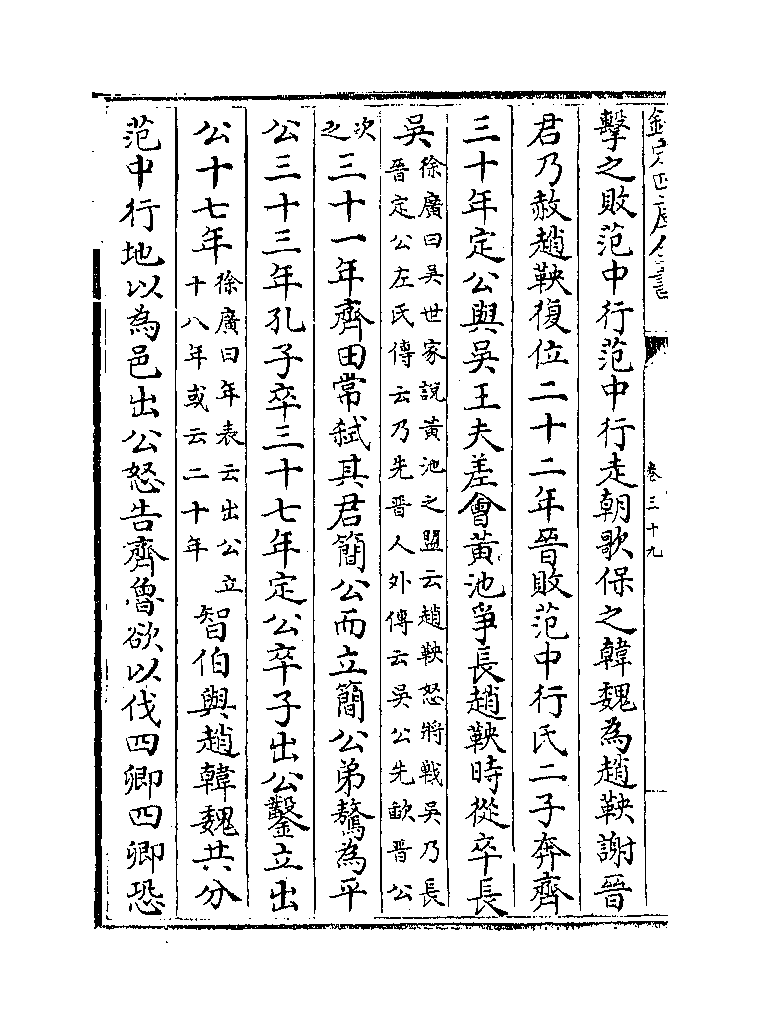 欽定四庫全書
卷三十九
擊之敗范中行范中行走朝歌保之韓魏為趙鞅謝晉
君乃赦趙鞅復位二十二年晉敗范中行氏二子奔齊
三十年定公與吳王夫差會黃池爭長趙鞅時從卒長
吳徐廣曰吳世家說黃池之盟云趙鞅怒將戰吳乃長
晉定公左氏傳云乃先晉人外傳云吳公先歃晉公
次之三十一年齊田常弑其君簡公而立簡公弟驁為平
公三十三年孔子卒三十七年定公卒子出公鑿立出
公十七年徐廣曰年表云出公立
十八年或云二十年
智伯與趙韓魏共分
范中行地以為邑出公怒告齊魯欲以伐四卿四卿恐